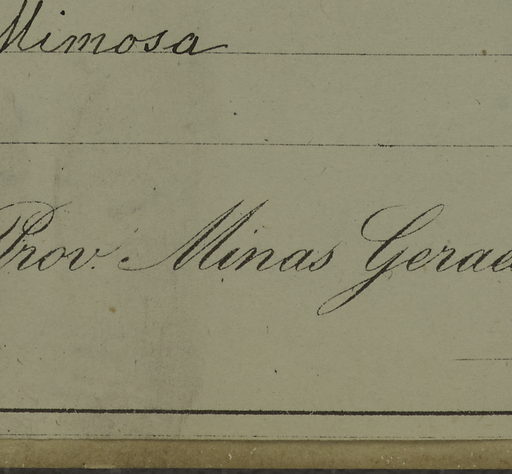 Mimosa
Prov. Minas Gerae